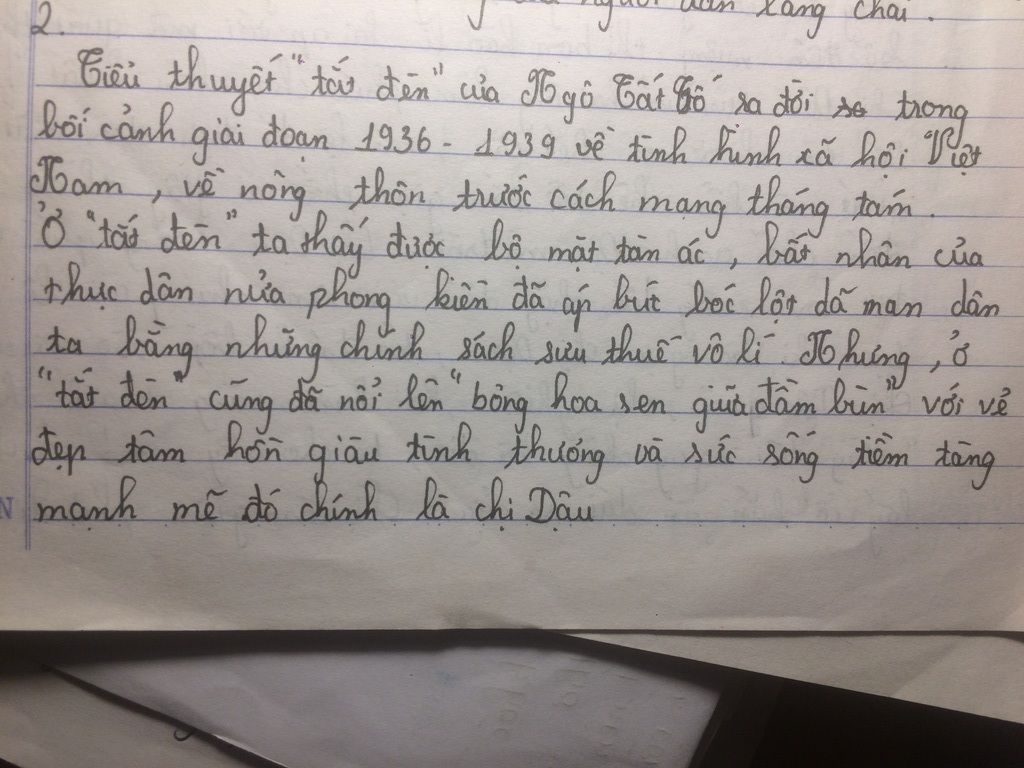 người dân xáng chài.
2.
Tiểu thuyết "tắt đèn" của Ngô Tất Tố ra đời trong
bối cảnh giai đoạn 1936 - 1939 về tình hình xã hội Việt
Nam, về nông thôn trước cách mạng tháng tám.
Ở "tắt đèn" ta thấy được bộ mặt tàn ác, bất nhân của
thực dân nửa phong kiến đã áp bức bóc lột dã man dân
ta bằng những chính sách sưu thuế vô lí. Nhưng, ở
"tắt đèn" cũng đã nổi lên "bông hoa sen giữa đầm bùn" với vẻ
đẹp tâm hồn giàu tình thương và sức sống tiềm tàng
mạnh mẽ đó chính là chị Dậu